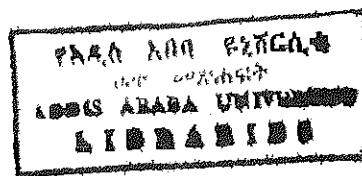 የአዲስ አበባ ዩኒቨርሲቲ
ADDIS ABABA UNIVERSITY
LIBRARIES